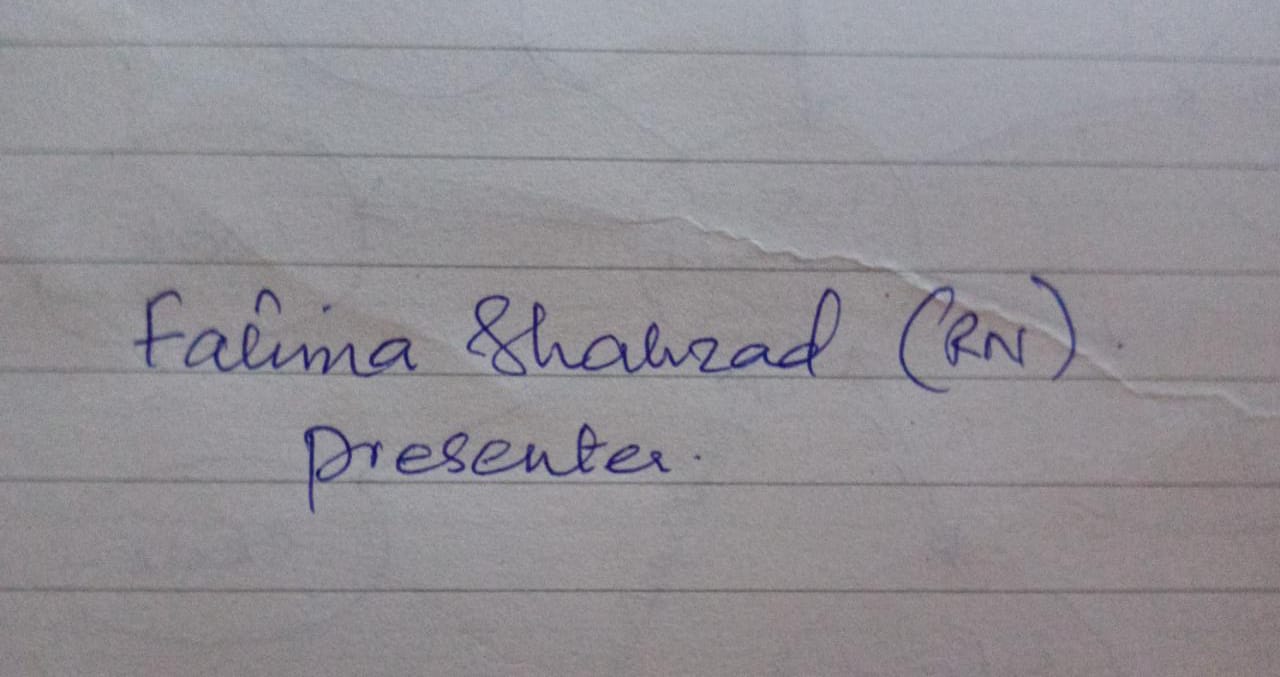 Fatima Shahzad (RN).
presenter.